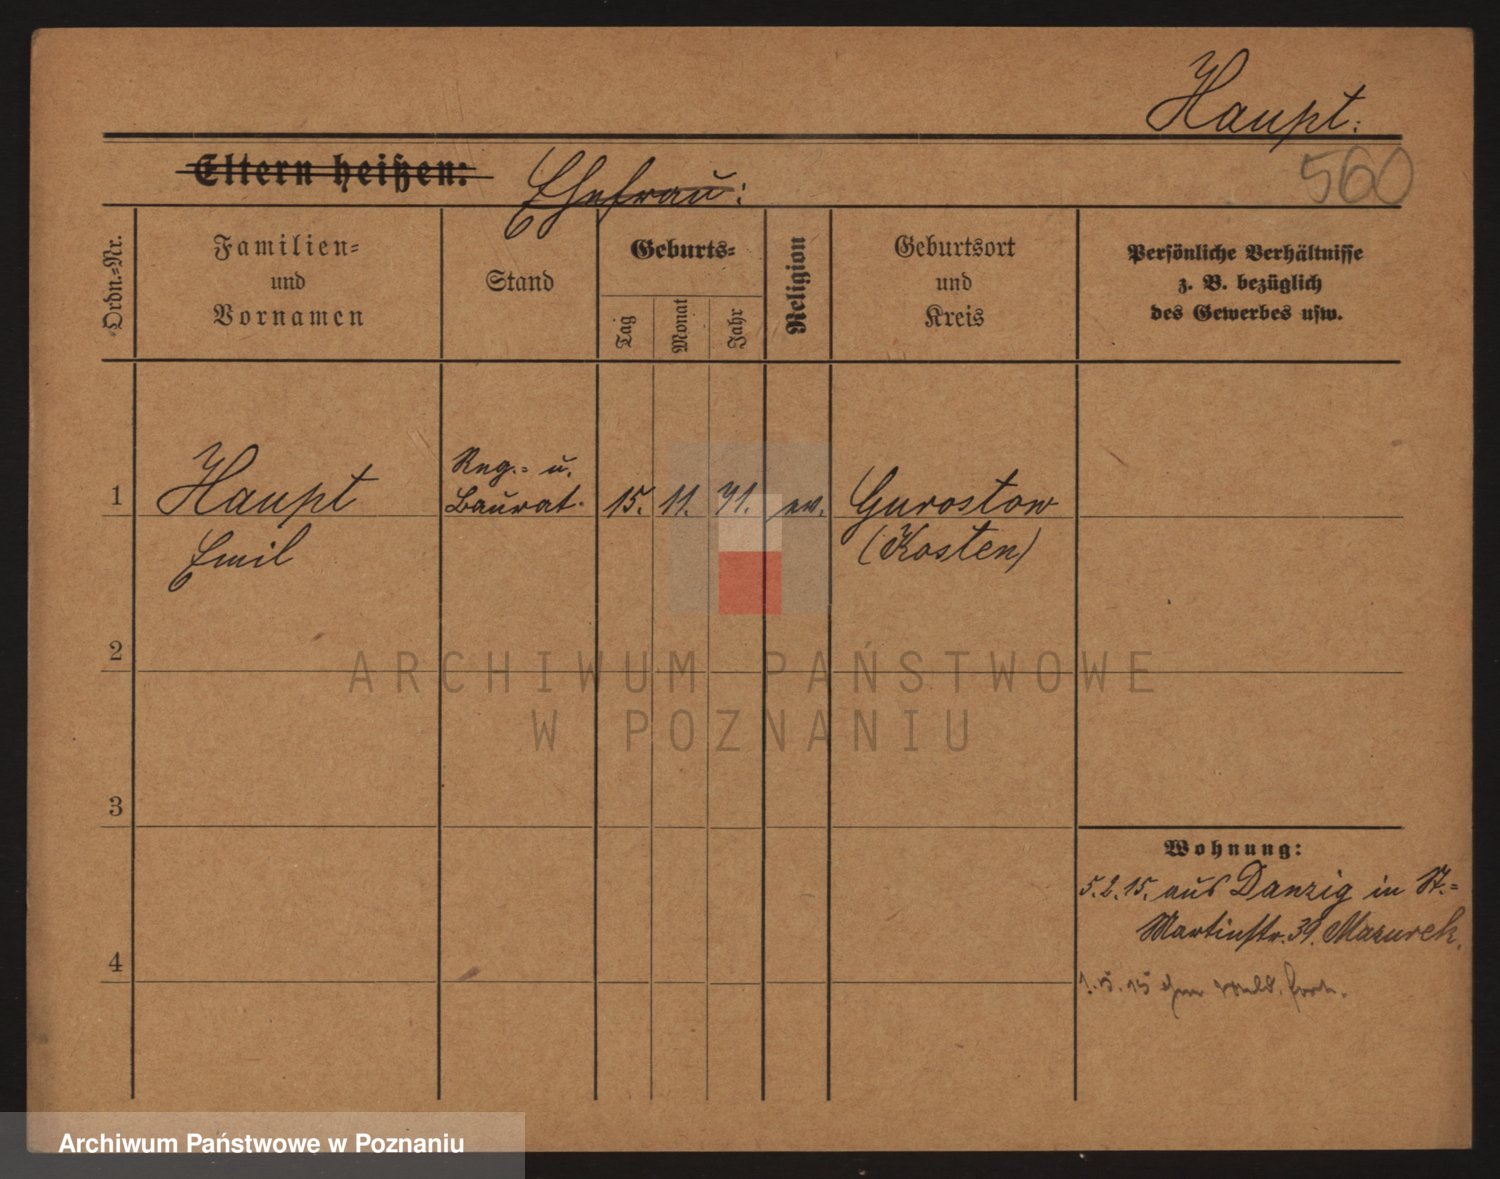 Haupt:
560
Eltern heißen:
Ehefrau:
Ordn.-Nr.
Familien-
und
Vornamen
Stand
Geburts-
Tag
Monat
Jahr
Religion
Geburtsort
und
Kreis
Persönliche Verhältnisse
z. B. bezüglich
des Gewerbes usw.
1
Haupt
Emil
Reg.- u.
Baurat.
15. 11. 71. ev.
Gurostow
(Kosten)
2
3
4
Wohnung:
5.2.15. aus Danzig in St.-
Martinstr. 39. Mazurek.
ARCHIWUM PAŃSTWOWE
W POZNANIU
Archiwum Państwowe w Poznaniu